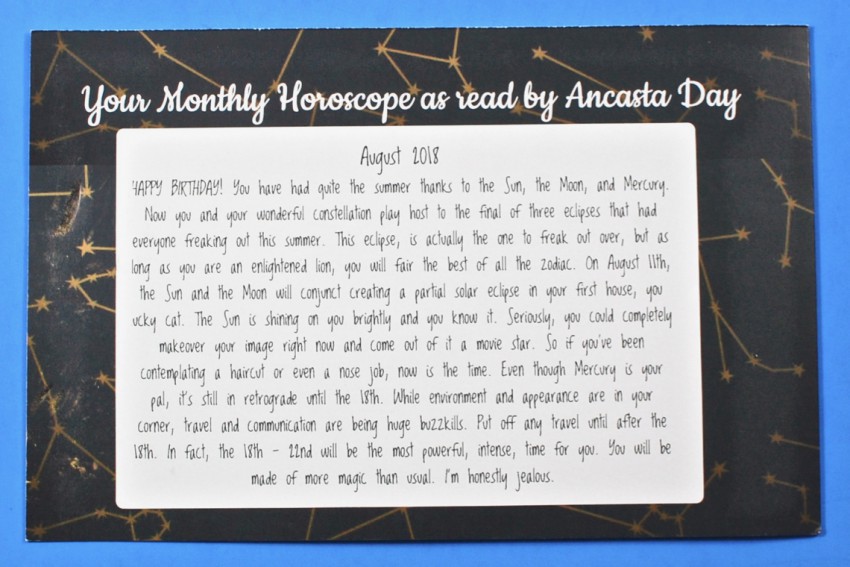 Your Monthly Horoscope as read by Ancasta Day
August 2018
HAPPY BIRTHDAY! You have had quite the summer thanks to the Sun, the Moon, and Mercury.
Now you and your wonderful constellation play host to the final of three eclipses that had
everyone freaking out this summer. This eclipse, is actually the one to freak out over, but as
long as you are an enlightened lion, you will fair the best of all the zodiac. On August 11th,
the Sun and the Moon will conjunct creating a partial solar eclipse in your first house, you
ucky cat. The Sun is shining on you brightly and you know it. Seriously, you could completely
makeover your image right now and come out of it a movie star. So if you've been
contemplating a haircut or even a nose job, now is the time. Even though Mercury is your
pal, it's still in retrograde until the 18th. While environment and appearance are in your
corner, travel and communication are being huge buzzkills. Put off any travel until after the
18th. In fact, the 18th - 22nd will be the most powerful, intense, time for you. You will be
made of more magic than usual. I'm honestly jealous.